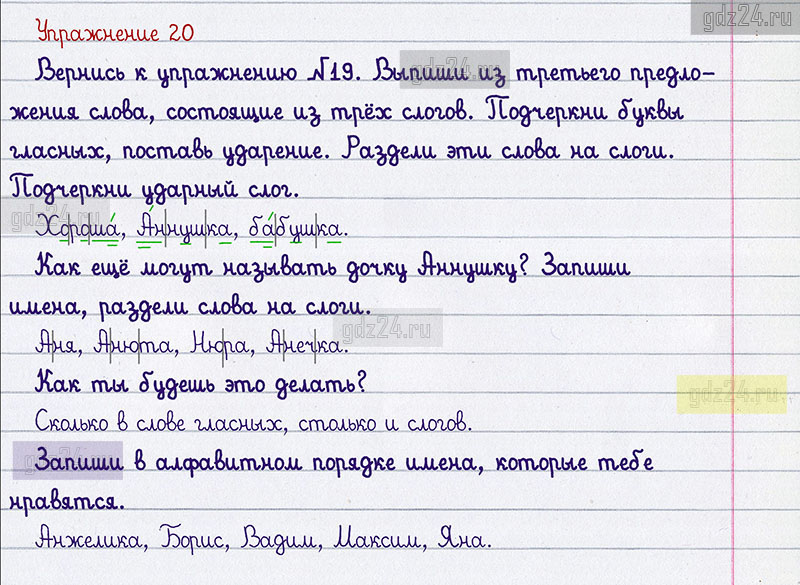 gdz24.ru
Упражнение 20
Вернись к упражнению №19. Выпиши из третьего предло-
жения слова, состоящие из трёх слогов. Подчеркни буквы
гласных, поставь ударение. Раздели эти слова на слоги.
Подчеркни ударный слог.
Хо|ро|ша́, А́н|нуш|ка, ба́|буш|ка.
Как ещё могут называть дочку Аннушку? Запиши
имена, раздели слова на слоги.
А|ня, А|ню|та, Ню|ра, А|неч|ка.
Как ты будешь это делать?
Сколько в слове гласных, столько и слогов.
Запиши в алфавитном порядке имена, которые тебе
нравятся.
Анжелика, Борис, Вадим, Максим, Яна.
gdz24.ru
gdz24.ru
gdz24.ru
gdz24.ru
gdz24.ru